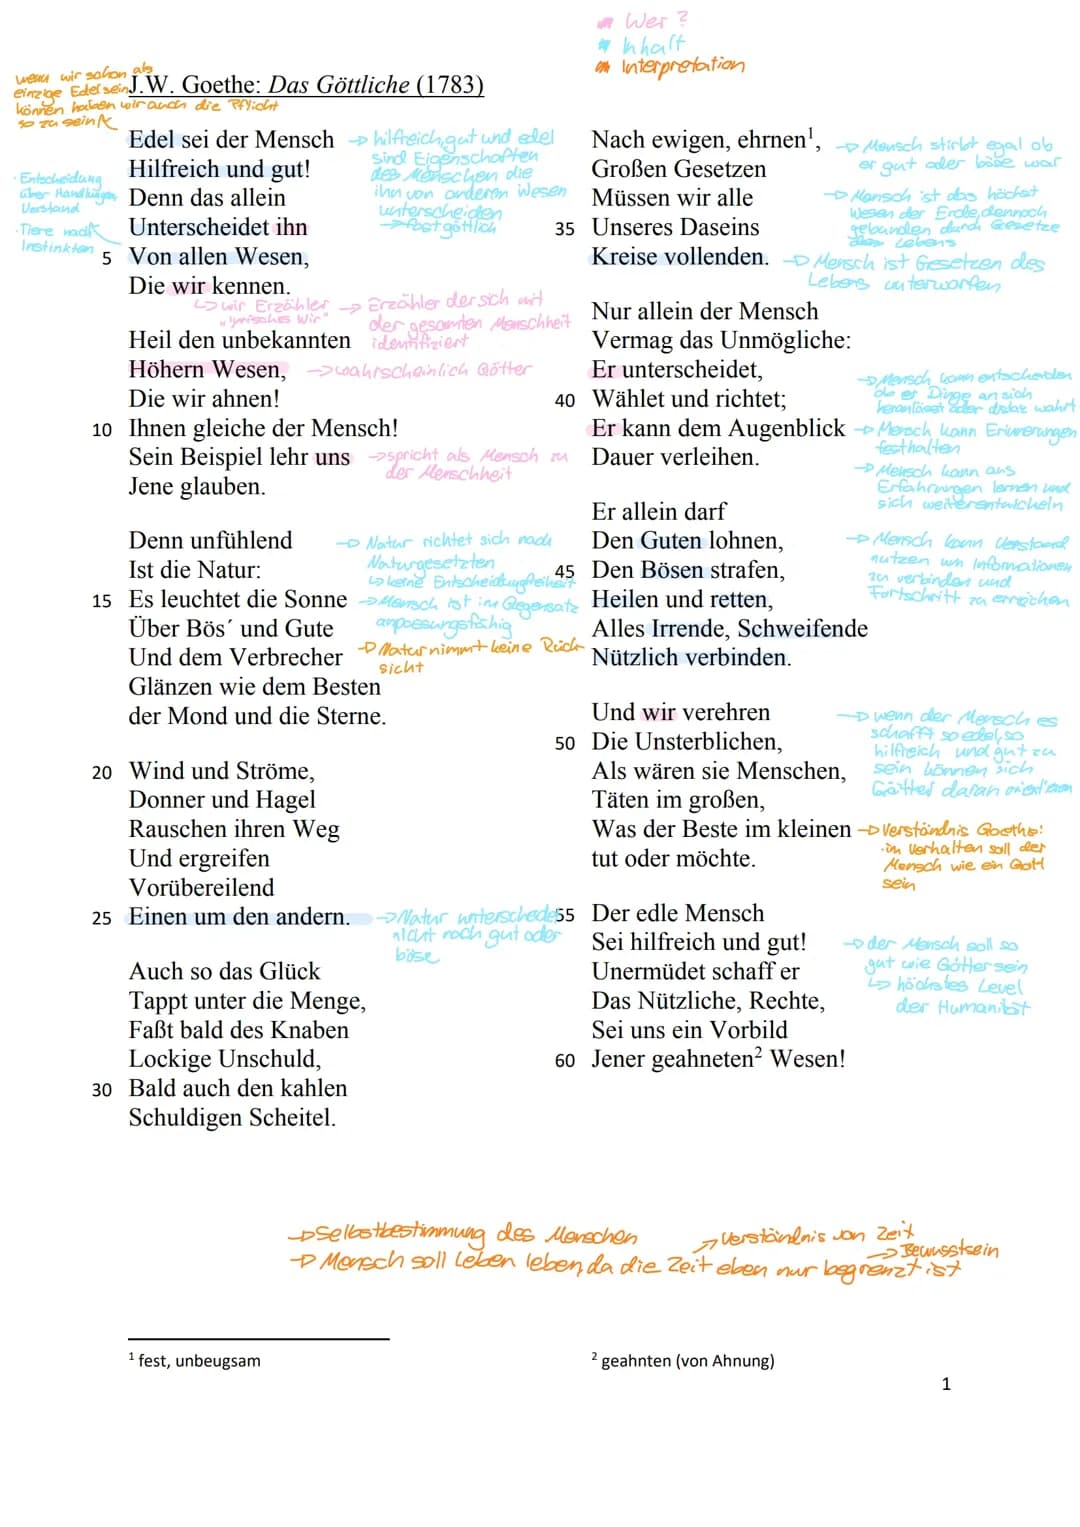 Wer ?
Inhalt
Interpretation
wenn wir schon als
einzige Edel sein
können haben wir auch die Pflicht
so zu sein
J.W. Goethe: Das Göttliche (1783)
Edel sei der Mensch
Hilfreich und gut!
Denn das allein
Unterscheidet ihn
5 Von allen Wesen,
Die wir kennen.
→ hilfreich, gut und edel
sind Eigenschaften
des Menschen die
ihn von anderen Wesen
unterscheiden
→ fast göttlich
· Entscheidung
über Handlungen
Verstand
· Tiere nach
Instinkten
↳ wir Erzähler → Erzähler der sich mit
"lyrisches Wir"
der gesamten Menschheit
identifiziert
Heil den unbekannten
Höhern Wesen,
→ wahrscheinlich Götter
Die wir ahnen!
10 Ihnen gleiche der Mensch!
Sein Beispiel lehr uns
→ spricht als Mensch zu
der Menschheit
Jene glauben.
Denn unfühlend
Ist die Natur:
15 Es leuchtet die Sonne
Über Bös´ und Gute
Und dem Verbrecher
Glänzen wie dem Besten
der Mond und die Sterne.
→ Natur richtet sich nach
Naturgesetzten
↳ keine Entscheidungsfreiheit
→ Mensch ist im Gegensatz
anpassungsfähig
→ Natur nimmt keine Rück-
sicht
20 Wind und Ströme,
Donner und Hagel
Rauschen ihren Weg
Und ergreifen
Vorübereilend
25 Einen um den andern.
→ Natur unterscheidet
nicht nach gut oder
böse
Auch so das Glück
Tappt unter die Menge,
Faßt bald des Knaben
Lockige Unschuld,
30 Bald auch den kahlen
Schuldigen Scheitel.
Nach ewigen, ehrnen¹,
Großen Gesetzen
Müssen wir alle
35 Unseres Daseins
Kreise vollenden.
→ Mensch stirbt egal ob
er gut oder böse war
→ Mensch ist das höchst
Wesen der Erde, dennoch
gebunden durch Gesetze
des Lebens
→ Mensch ist Gesetzen des
Lebens unterworfen
Nur allein der Mensch
Vermag das Unmögliche:
Er unterscheidet,
40 Wählet und richtet;
Er kann dem Augenblick
Dauer verleihen.
→ Mensch kann entscheiden
ob er Dinge an sich
heranlässt oder
→ Mensch kann Erinnerungen
festhalten
→ Mensch kann aus
Erfahrungen lernen und
sich weiterentwickeln
Er allein darf
Den Guten lohnen,
45 Den Bösen strafen,
Heilen und retten,
Alles Irrende, Schweifende
Nützlich verbinden.
→ Mensch kann Verstand
nutzen um Informationen
zu verbinden und
Fortschritt zu erreichen
Und wir verehren
50 Die Unsterblichen,
Als wären sie Menschen,
Täten im großen,
Was der Beste im kleinen
tut oder möchte.
→ wenn der Mensch es
schafft so edel, so
hilfreich und gut zu
sein können sich
Götter daran orientieren
→ Verständnis Goethe:
· im Verhalten soll der
Mensch wie ein Gott
sein
55 Der edle Mensch
Sei hilfreich und gut!
Unermüdet schaff er
Das Nützliche, Rechte,
Sei uns ein Vorbild
60 Jener geahneten² Wesen!
→ der Mensch soll so
gut wie Götter sein
↳ höchstes Level
der Humanität
→ Selbstbestimmung des Menschen
↗ Verständnis von Zeit
→ Bewusstsein
→ Mensch soll Leben leben da die Zeit eben nur begrenzt ist
¹ fest, unbeugsam
² geahnten (von Ahnung)
1